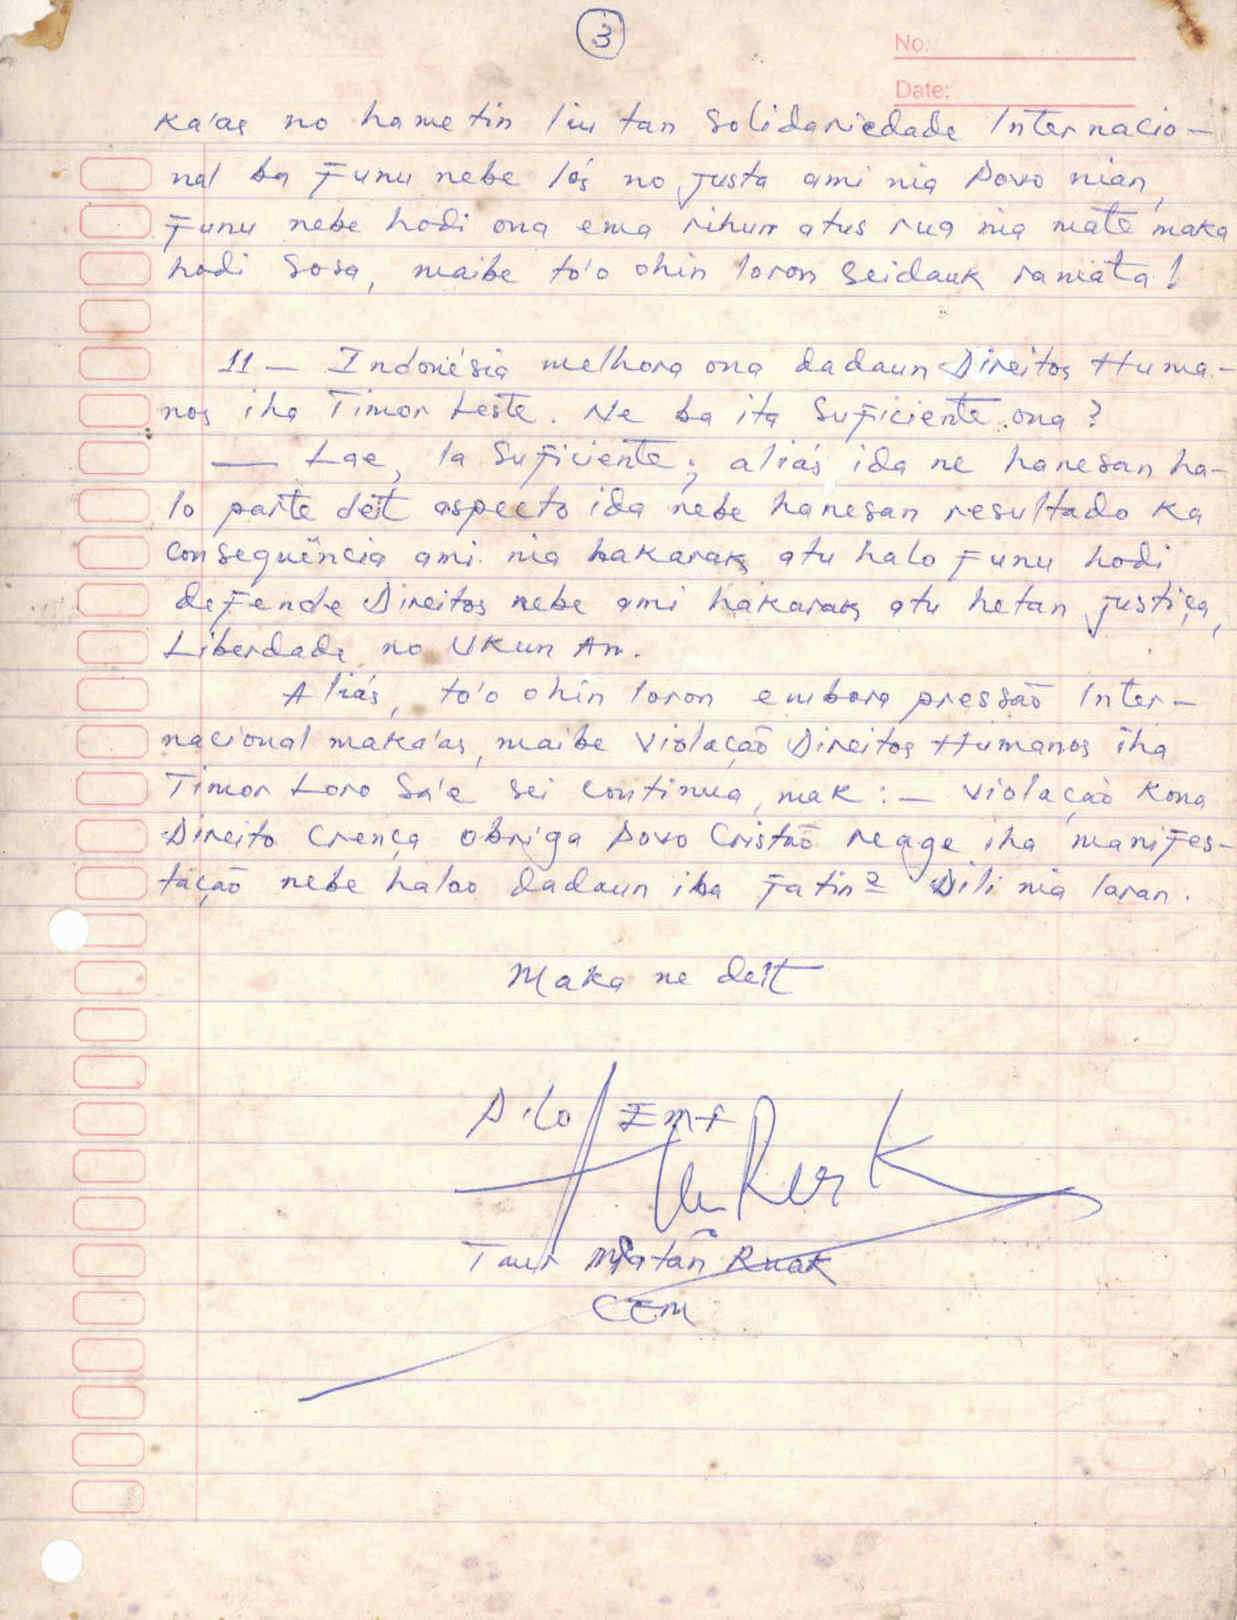 3
No:
Date:
ka'as no hametin liu tan Solidariedade Internacio-
nal ba Funu nebe lós no justa ami nia Povo nian,
Funu nebe hodi ona ema rihun atus rua nia mate maka
hodi Sosa, maibe to'o ohin loron seidauk ramata!
11 - Indonésia melhora ona dadaun Direitos Huma-
nos iha Timor Leste. Ne ba ita Suficiente ona?
— Lae, la Suficiente; aliás ida ne hanesan ha-
lo parte deit aspecto ida nebe hanesan resultado ka
consequência ami nia hakarak atu halo Funu hodi
deFende Direitos nebe ami hakarak atu hetan justiça,
Liberdade no Ukun An.
Aliás, to'o ohin loron embora pressão Inter-
nacional maka'as, maibe Violação Direitos Humanos iha
Timor Loro Sa'e sei continua, mak: - Violação kona
Direito Crença obriga Povo Cristão reage iha manifes-
tação nebe halao dadaun iha Fatin2 Dili nia laran.
Maka ne deit
Taur Matan Ruak
CEM